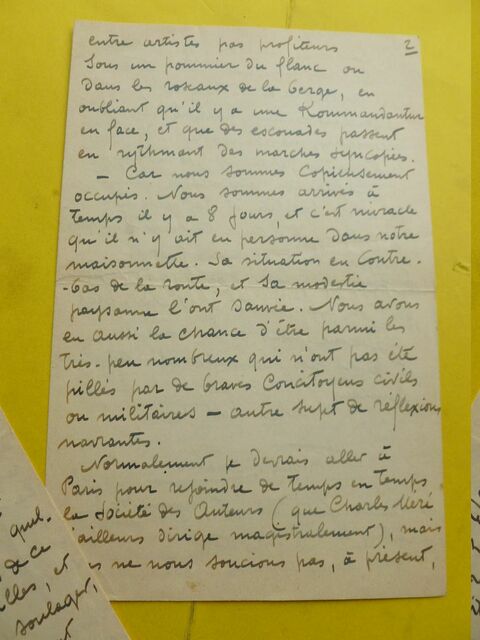 2
entre artistes pas profiteurs
sous un pommier du flanc ou
dans les roseaux de la berge, en
oubliant qu'il y a une Kommandantur
en face, et que des escouades passent
en rythmant des marches syncopées.
— Car nous sommes copieusement
occupés. Nous sommes arrivés à
temps il y a 8 jours, et c'est miracle
qu'il n'y ait eu personne dans notre
maisonnette. Sa situation en contre-
-bas de la route, et sa modestie
paysanne l'ont sauvée. Nous avons
eu aussi la chance d'être parmi les
très-peu nombreux qui n'ont pas été
pillés par de braves concitoyens civils
ou militaires — autre sujet de réflexions
navrantes.
Normalement je devrais aller à
Paris pour rejoindre de temps en temps
la Société des Auteurs (que Charles Méré
d'ailleurs dirige magistralement), mais
ne nous soucions pas, à présent,
quel-
de ce
lles, et
soulager,